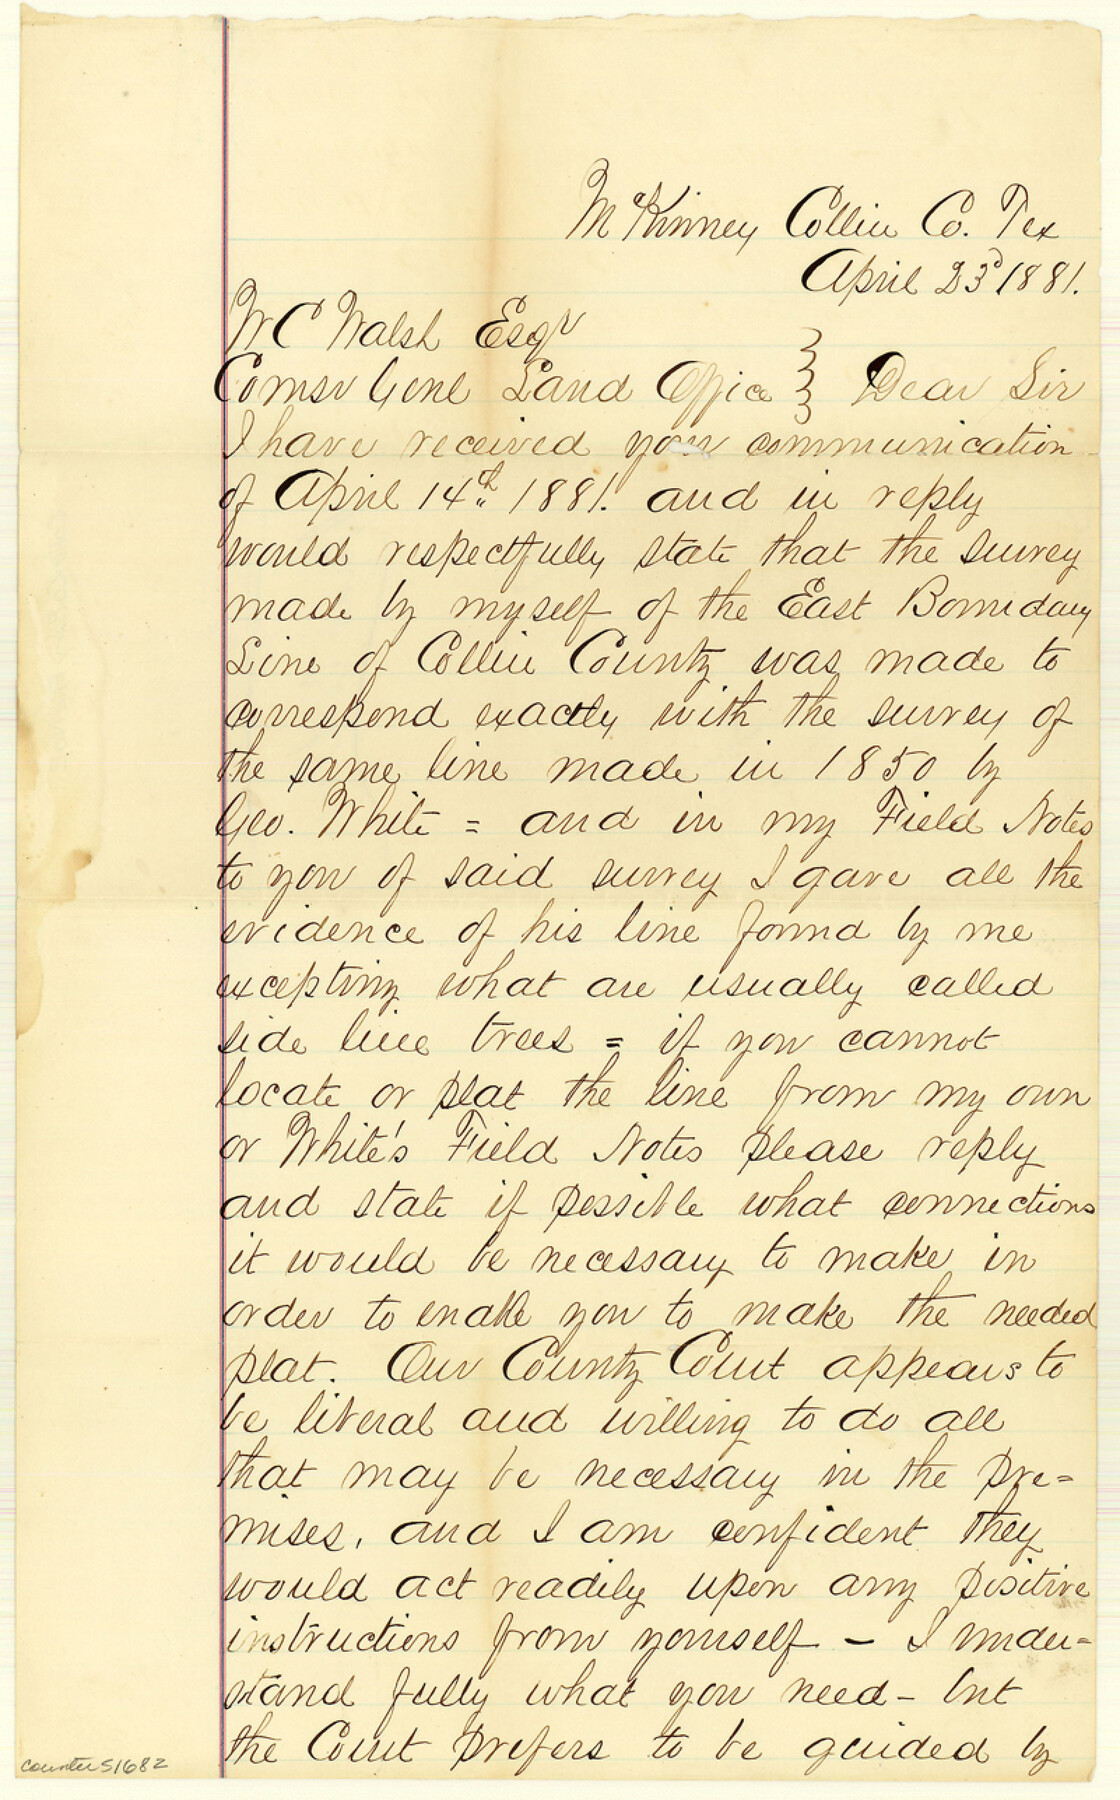 McKinney Collin Co. Tex
April 23d 1881.
W C Walsh Esqr
Comsr Genl Land Office } Dear Sir
I have received your communication
of April 14th 1881. and in reply
would respectfully state that the survey
made by myself of the East Boundary
Line of Collin County was made to
correspond exactly with the survey of
the same line made in 1850 by
Geo. White = and in my Field Notes
to you of said survey I gave all the
evidence of his line found by me
excepting what are usually called
side line trees = if you cannot
locate or plat the line from my own
or White's Field Notes please reply
and state if possible what connections
it would be necessary to make in
order to enable you to make the needed
plat. Our County Court appears to
be liberal and willing to do all
that may be necessary in the pre=
mises, and I am confident they
would act readily upon any positive
instructions from yourself - I under=
stand fully what you need - but
the Court prefers to be guided by
counter 51682